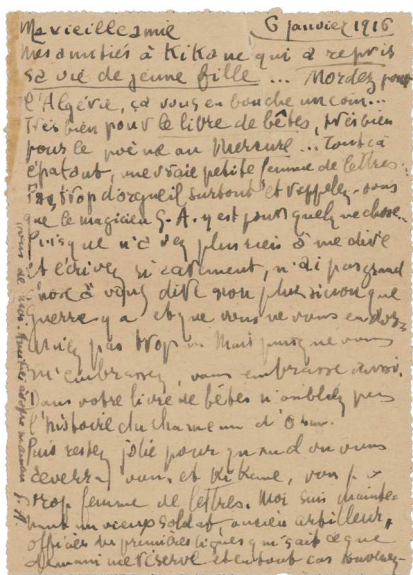 Ma vieille amie 6 janvier 1916
Mes amitiés à Kikane qui a repris
sa vie de jeune fille ... Mordez pour
l'Algérie, ça vous en bouche un coin...
Très bien pour le libre de bêtes, très bien
pour le poème au Mercure ... Tout à
épatant, une vraie petite femme de lettres.
Pas trop d'orgueil surtout et rappelez-vous
que le magicien G. A. y est pour quelque chose.
Puisque n'avez plus rien à me dire
et écrivez si rarement, n'ai pas grand
chose à vous dire non plus sinon que
guerre y a et que vous ne vous en
pas trop Mais puisque vous
m'embrassez, vous embrasse aussi.
Dans votre livre de bêtes n'oubliez pas
l'histoire du chameau d'Oran.
Puis restez jolie pour quand on vous
reverra vous et Kikane, vous
trop femme de lettres. Moi suis mainte-
nant un vieux soldat, ancien artilleur,
officier des premières lignes qui sait ce que
demain me réserve et en tout cas